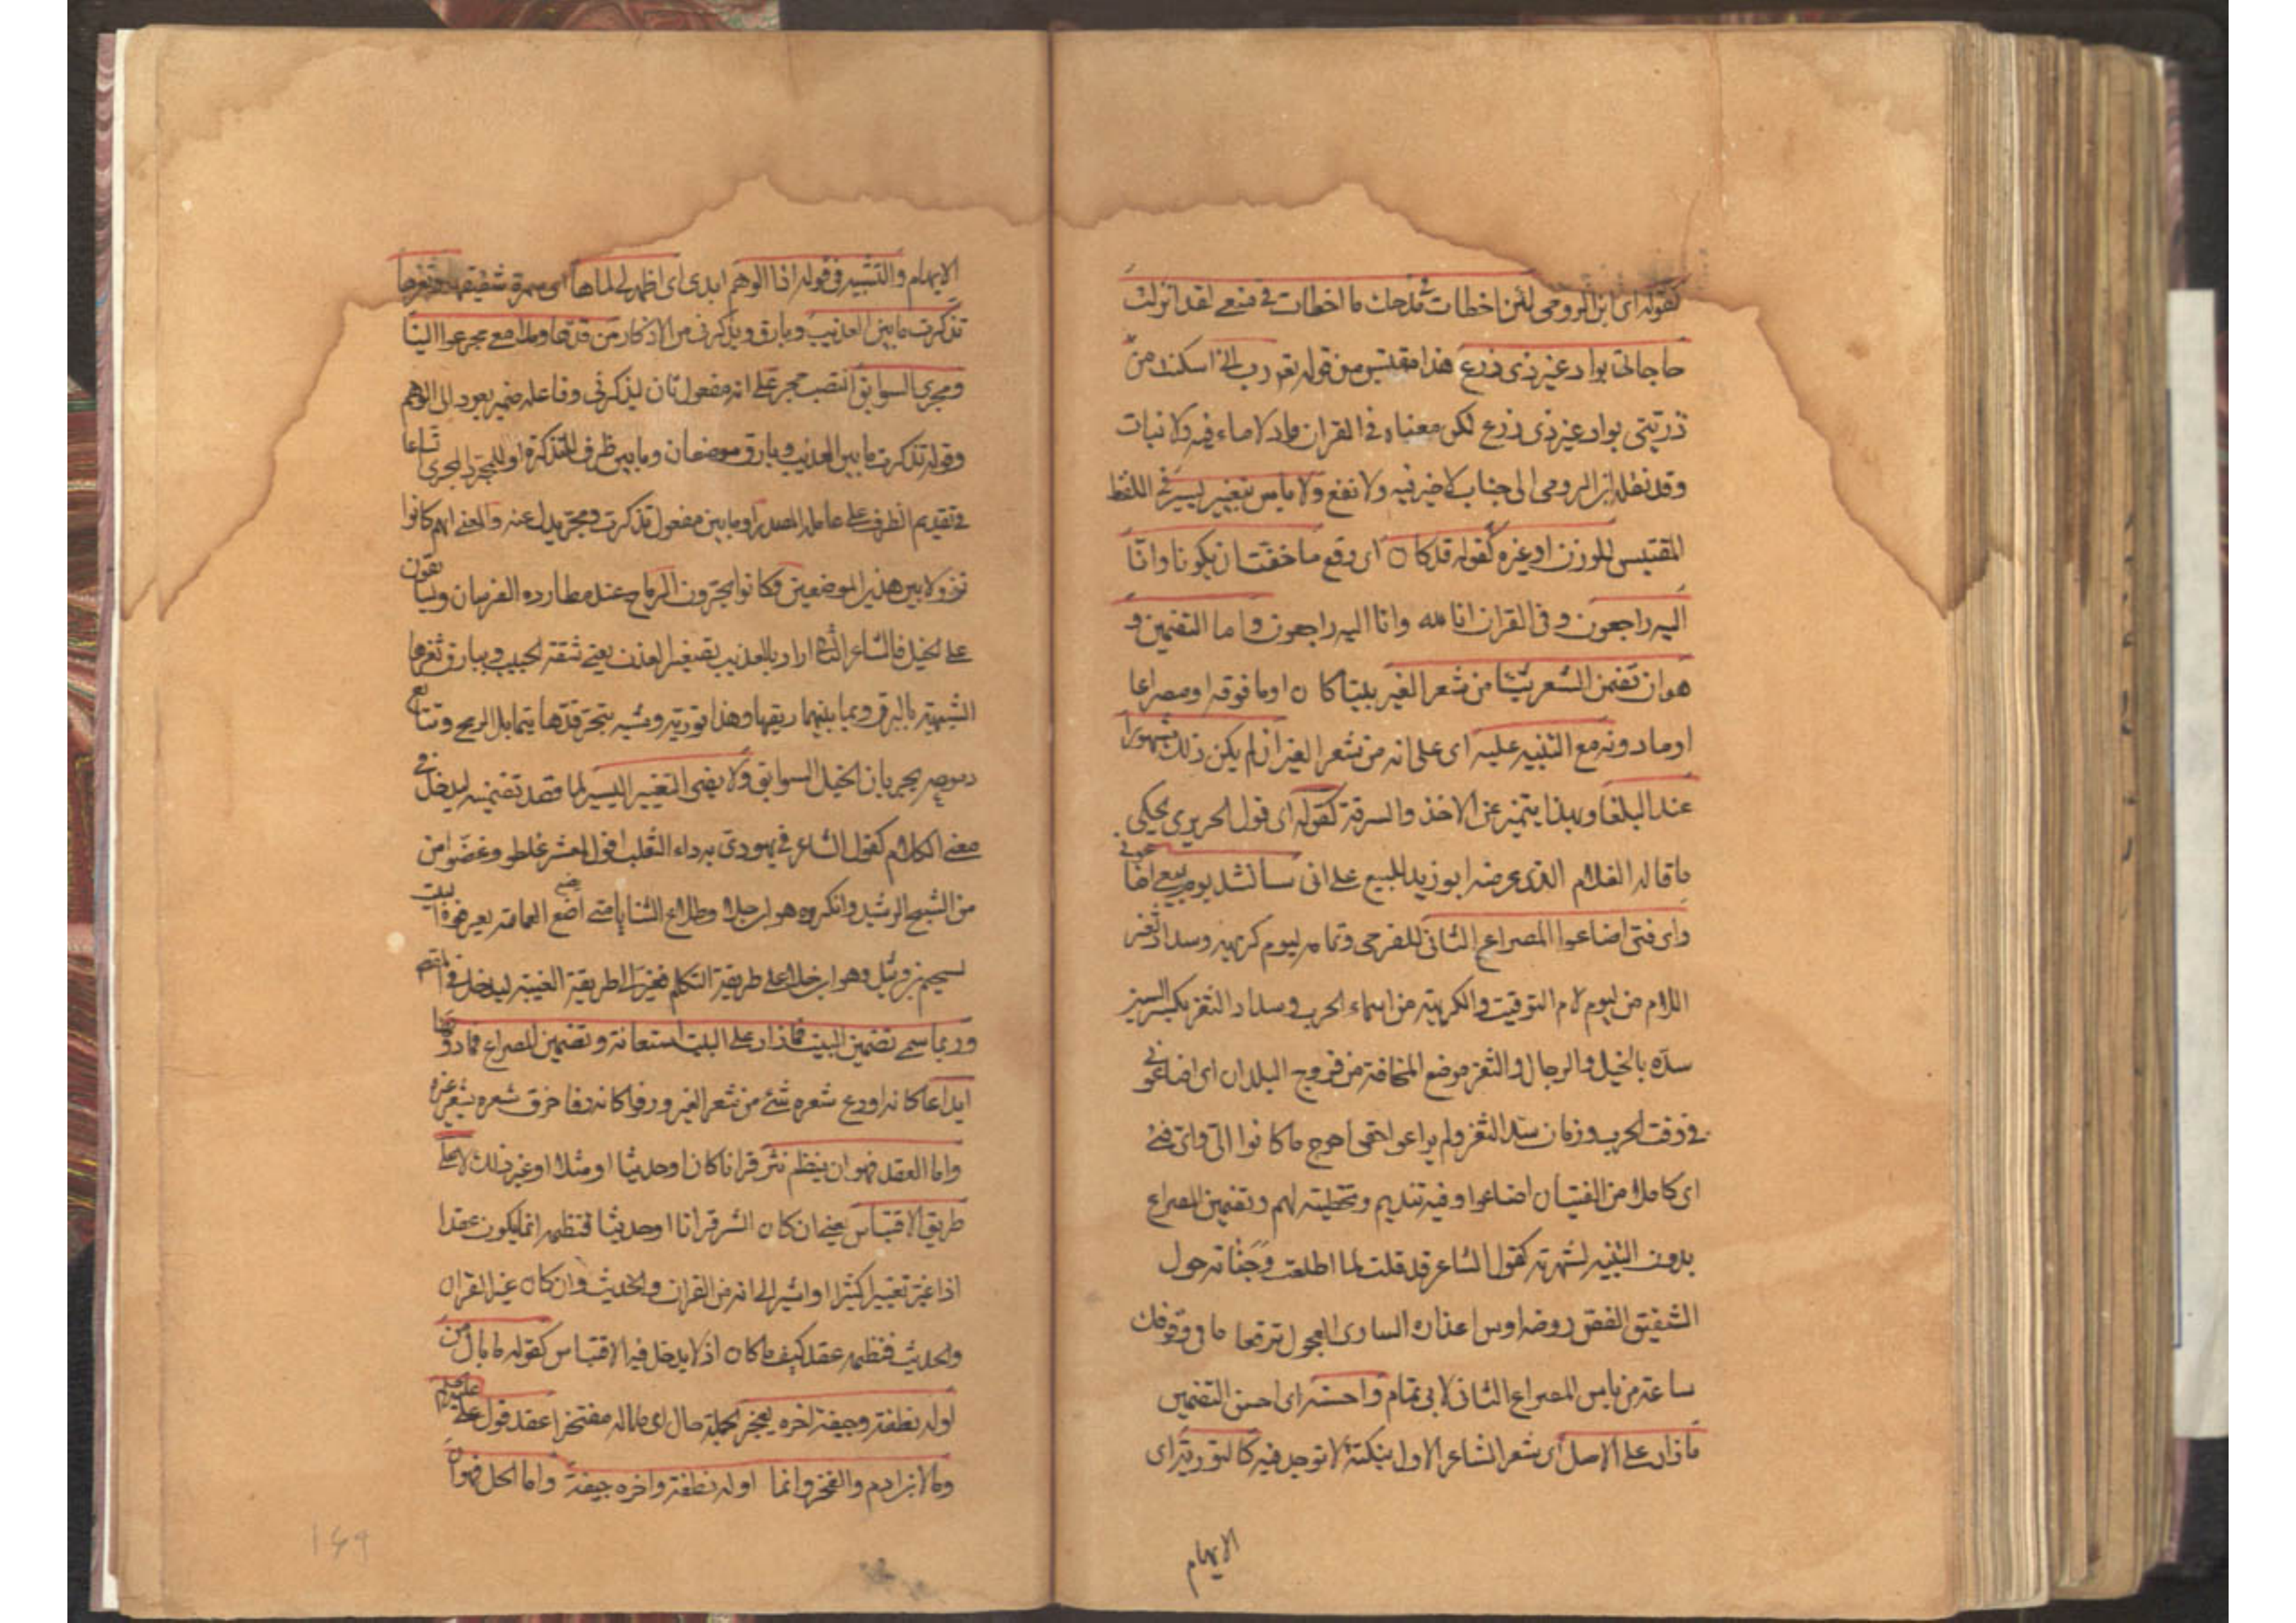 كقوله اى ابن الرومى لئن اخطات فى مدحك ما اخطات فى منعى لقد انزلت
حاجاتى بواد غير ذى زرع هذا مقتبس من قوله تع رب انى اسكنت من
ذريتى بواد غير ذى زرع لكن معناه فى القران واد لا ماء فيه ولا نبات
وقد نقله ابن الرومى الى جناب لا خير فيه ولا نفع ولا باس بتغيير يسير فى اللفظ
المقتبس للوزن او غيره كقوله قد كان اى وقع ما خفت ان يكونا وانا
اليه راجعون و فى القران انا لله وانا اليه راجعون واما التضمين و
هو ان تضمن الشعر شيئا من شعر الغير بيتا كان او ما فوقه او مصراعا
او ما دونه مع التنبيه عليه اى على انه من شعر الغير ان لم يكن ذلك مشهورا
عند البلغا وبهذا يتميز عن الاخذ والسرقة كقوله اى قول الحريرى يحكى
ما قاله الغلام الذى عرضه ابو زيد للبيع على انى سانشد يوم بيعى اضاعونى
واى فتى اضاعوا المصراع الثانى للفرجى وتمامه ليوم كريهة وسداد ثغر
اللام من ليوم لام التوقيت والكريهة من اسماء الحرب وسداد الثغر بكسر السين
سده بالخيل والرجال والثغر موضع المخافة من فروج البلدان اى اضاعونى
فى وقت الحرب وزمان سد الثغر ولم يراعوا حقى احوج ما كانوا الى واى فتى
اى كاملا من الفتيان اضاعوا وفيه تنديم وتخطيئة لهم وتضمين المصراع
بدون التنبيه لشهرته كقول الشاعر قد قلت لما اطلعت وجناته حول
الشقيق الغض روضة اوس اعذاره السارى العجول ترفقا ما فى وقوفك
ساعة من باس المصراع الثانى لابى تمام واحسنه اى احسن التضمين
ما زاد على الاصل اى شعر الشاعر الاول بنكتة لا توجد فيه كالتورية اى
الايهام
الايهام والتشبيه فى قوله اذا الوهم ابدى اى اظهر لى لماها اى سمرة شفتيها وثغرها
تذكرت ما بين العذيب وبارق ويذكرنى من الاذكار من قدها ومدامعى مجر عوالينا
ومجرى السوابق انتصب مجر على انه مفعول ثان ليذكرنى وفاعله ضمير يعود الى الوهم
وقوله تذكرت ما بين العذيب وبارق موضعان وما بين ظرف للتذكر او للمجر والمجرى تساعا
فى تقديم الظرف على عامله المصدر او ما بين مفعول تذكرت ومجر بدل عنه والمعنى انهم كانوا
نزولا بين هذين الموضعين وكانوا يجرون الرماح عند مطارده الفرسان ويسابقون
على الخيل فالشاعر الثانى اراد بالعذيب تصغير العذب يعنى شفة الحبيب وببارق ثغرها
الشبيهة بالبرق وبما بينهما ريقها وهذا تورية وشبه تبختر قدها بتمايل الرمح وتتابع
دموعه بجريان الخيل السوابق ولا يضر التغيير اليسير لما قصد تضمينه ليدخل فى
معنى الكلام كقول الشاعر فى يهودى به داء الثعلب اقول لمعشر غلطو وغضوا من
من الشيخ الرشيد وانكروه هو ابن جلا وطلاع الثنايا متى يضع العمامة يعرفوه البيت
لسحيم بن وثيل وهو ابن جلا على طريقة التكلم فغيره الى طريقة الغيبة ليدخل فى
وربما سمى تضمين البيت فما زاد على البيت استعانة وتضمين المصراع فما دونها
ايداعا كانه اودع شعره شئ من شعر الغير ورفوا كانه رفا خرق شعره بشعر غيره
واما العقد فهو ان ينظم نثر قرانا كان او حديثا او مثلا او غير ذلك لا على
طريق الاقتباس يعنى ان كان النثر قرانا او حديثا فنظمه انما يكون عقدا
اذا غير تغييرا كثيرا او اشير الى انه من القران والحديث وان كان غير القران
والحديث فنظمه عقد كيف ما كان اذ لا يدخل فيه الاقتباس كقوله ما بال من
اوله نطفة وجيفة اخره يفخر الجملة حال اى ما باله مفتخرا عقد قول على
وما لابن ادم والفخر وانما اوله نطفة واخره جيفة واما الحل فهو ان